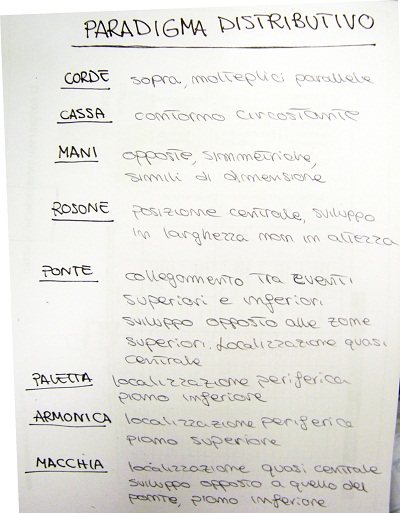 PARADIGMA DISTRIBUTIVO
CORDE sopra, molteplici parallele
CASSA contorno circostante
MANI opposte, simmetriche,
simili di dimensione
ROSONE posizione centrale, sviluppo
in larghezza non in altezza
PONTE collegamento tra eventi
superiori e inferiori
sviluppo opposto alle zone
superiori. Localizzazione quasi
centrale
PALETTA localizzazione periferica
piano inferiore
ARMONICA localizzazione periferica
piano superiore
MACCHIA localizzazione quasi centrale
sviluppo opposto a quello del
ponte, piano inferiore